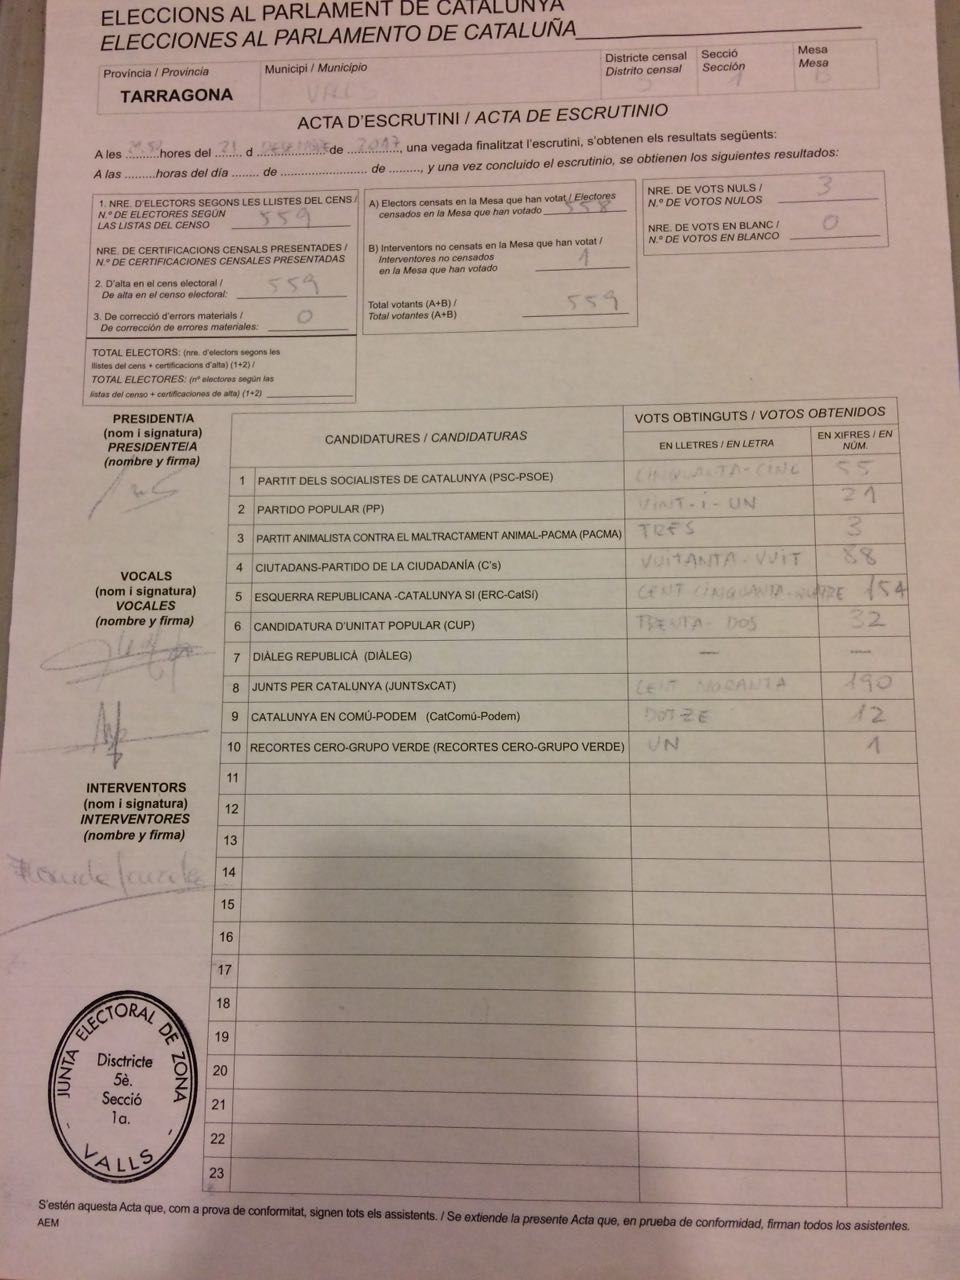 ELECCIONS AL PARLAMENT DE CATALUNYA
ELECCIONES AL PARLAMENTO DE CATALUÑA
Província / Provincia
TARRAGONA
Municipi / Municipio
VALLS
Districte censal
Distrito censal
5
Secció
Sección
1
Mesa
Mesa
B
ACTA D'ESCRUTINI / ACTA DE ESCRUTINIO
A les ......... hores del 21 d DESEMBRE de 2017, una vegada finalitzat l'escrutini, s'obtenen els resultats següents:
A las .........horas del día ........ de .......................... de ........., y una vez concluido el escrutinio, se obtienen los siguientes resultados:
1. NRE. D'ELECTORS SEGONS LES LLISTES DEL CENS /
N.º DE ELECTORES SEGÚN
LAS LISTAS DEL CENSO 559
NRE. DE CERTIFICACIONS CENSALS PRESENTADES /
N.º DE CERTIFICACIONES CENSALES PRESENTADAS
2. D'alta en el cens electoral /
De alta en el censo electoral: 559
3. De correcció d'errors materials /
De corrección de errores materiales: 0
TOTAL ELECTORS: (nre. d'electors segons les
llistes del cens + certificacions d'alta) (1+2) /
TOTAL ELECTORES: (nº electores según las
listas del censo + certificaciones de alta) (1+2)
A) Electors censats en la Mesa que han votat / Electores
censados en la Mesa que han votado 558
B) Interventors no censats en la Mesa que han votat /
Interventores no censados
en la Mesa que han votado 1
Total votants (A+B) /
Total votantes (A+B) 559
NRE. DE VOTS NULS /
N.º DE VOTOS NULOS 3
NRE. DE VOTS EN BLANC /
N.º DE VOTOS EN BLANCO 0
PRESIDENT/A
(nom i signatura)
PRESIDENTE/A
(nombre y firma)
VOCALS
(nom i signatura)
VOCALES
(nombre y firma)
INTERVENTORS
(nom i signatura)
INTERVENTORES
(nombre y firma)
CANDIDATURES / CANDIDATURAS
VOTS OBTINGUTS / VOTOS OBTENIDOS
EN LLETRES / EN LETRA
EN XIFRES / EN
NÚM.
1 PARTIT DELS SOCIALISTES DE CATALUNYA (PSC-PSOE) CINQUANTA-CINC 55
2 PARTIDO POPULAR (PP) VINT-I-UN 21
3 PARTIT ANIMALISTA CONTRA EL MALTRACTAMENT ANIMAL-PACMA (PACMA) TRES 3
4 CIUTADANS-PARTIDO DE LA CIUDADANÍA (C's) VUITANTA-VUIT 88
5 ESQUERRA REPUBLICANA -CATALUNYA SI (ERC-CatSí) CENT CINQUANTA-QUATRE 154
6 CANDIDATURA D'UNITAT POPULAR (CUP) TRENTA-DOS 32
7 DIÀLEG REPUBLICÀ (DIÀLEG) — —
8 JUNTS PER CATALUNYA (JUNTSxCAT) CENT NORANTA 190
9 CATALUNYA EN COMÚ-PODEM (CatComú-Podem) DOTZE 12
10 RECORTES CERO-GRUPO VERDE (RECORTES CERO-GRUPO VERDE) UN 1
11
12
13
14
15
16
17
18
19
20
21
22
23
JUNTA ELECTORAL DE ZONA
Disctricte
5è.
Secció
1a.
- VALLS -
S'estén aquesta Acta que, com a prova de conformitat, signen tots els assistents. / Se extiende la presente Acta que, en prueba de conformidad, firman todos los asistentes.
AEM